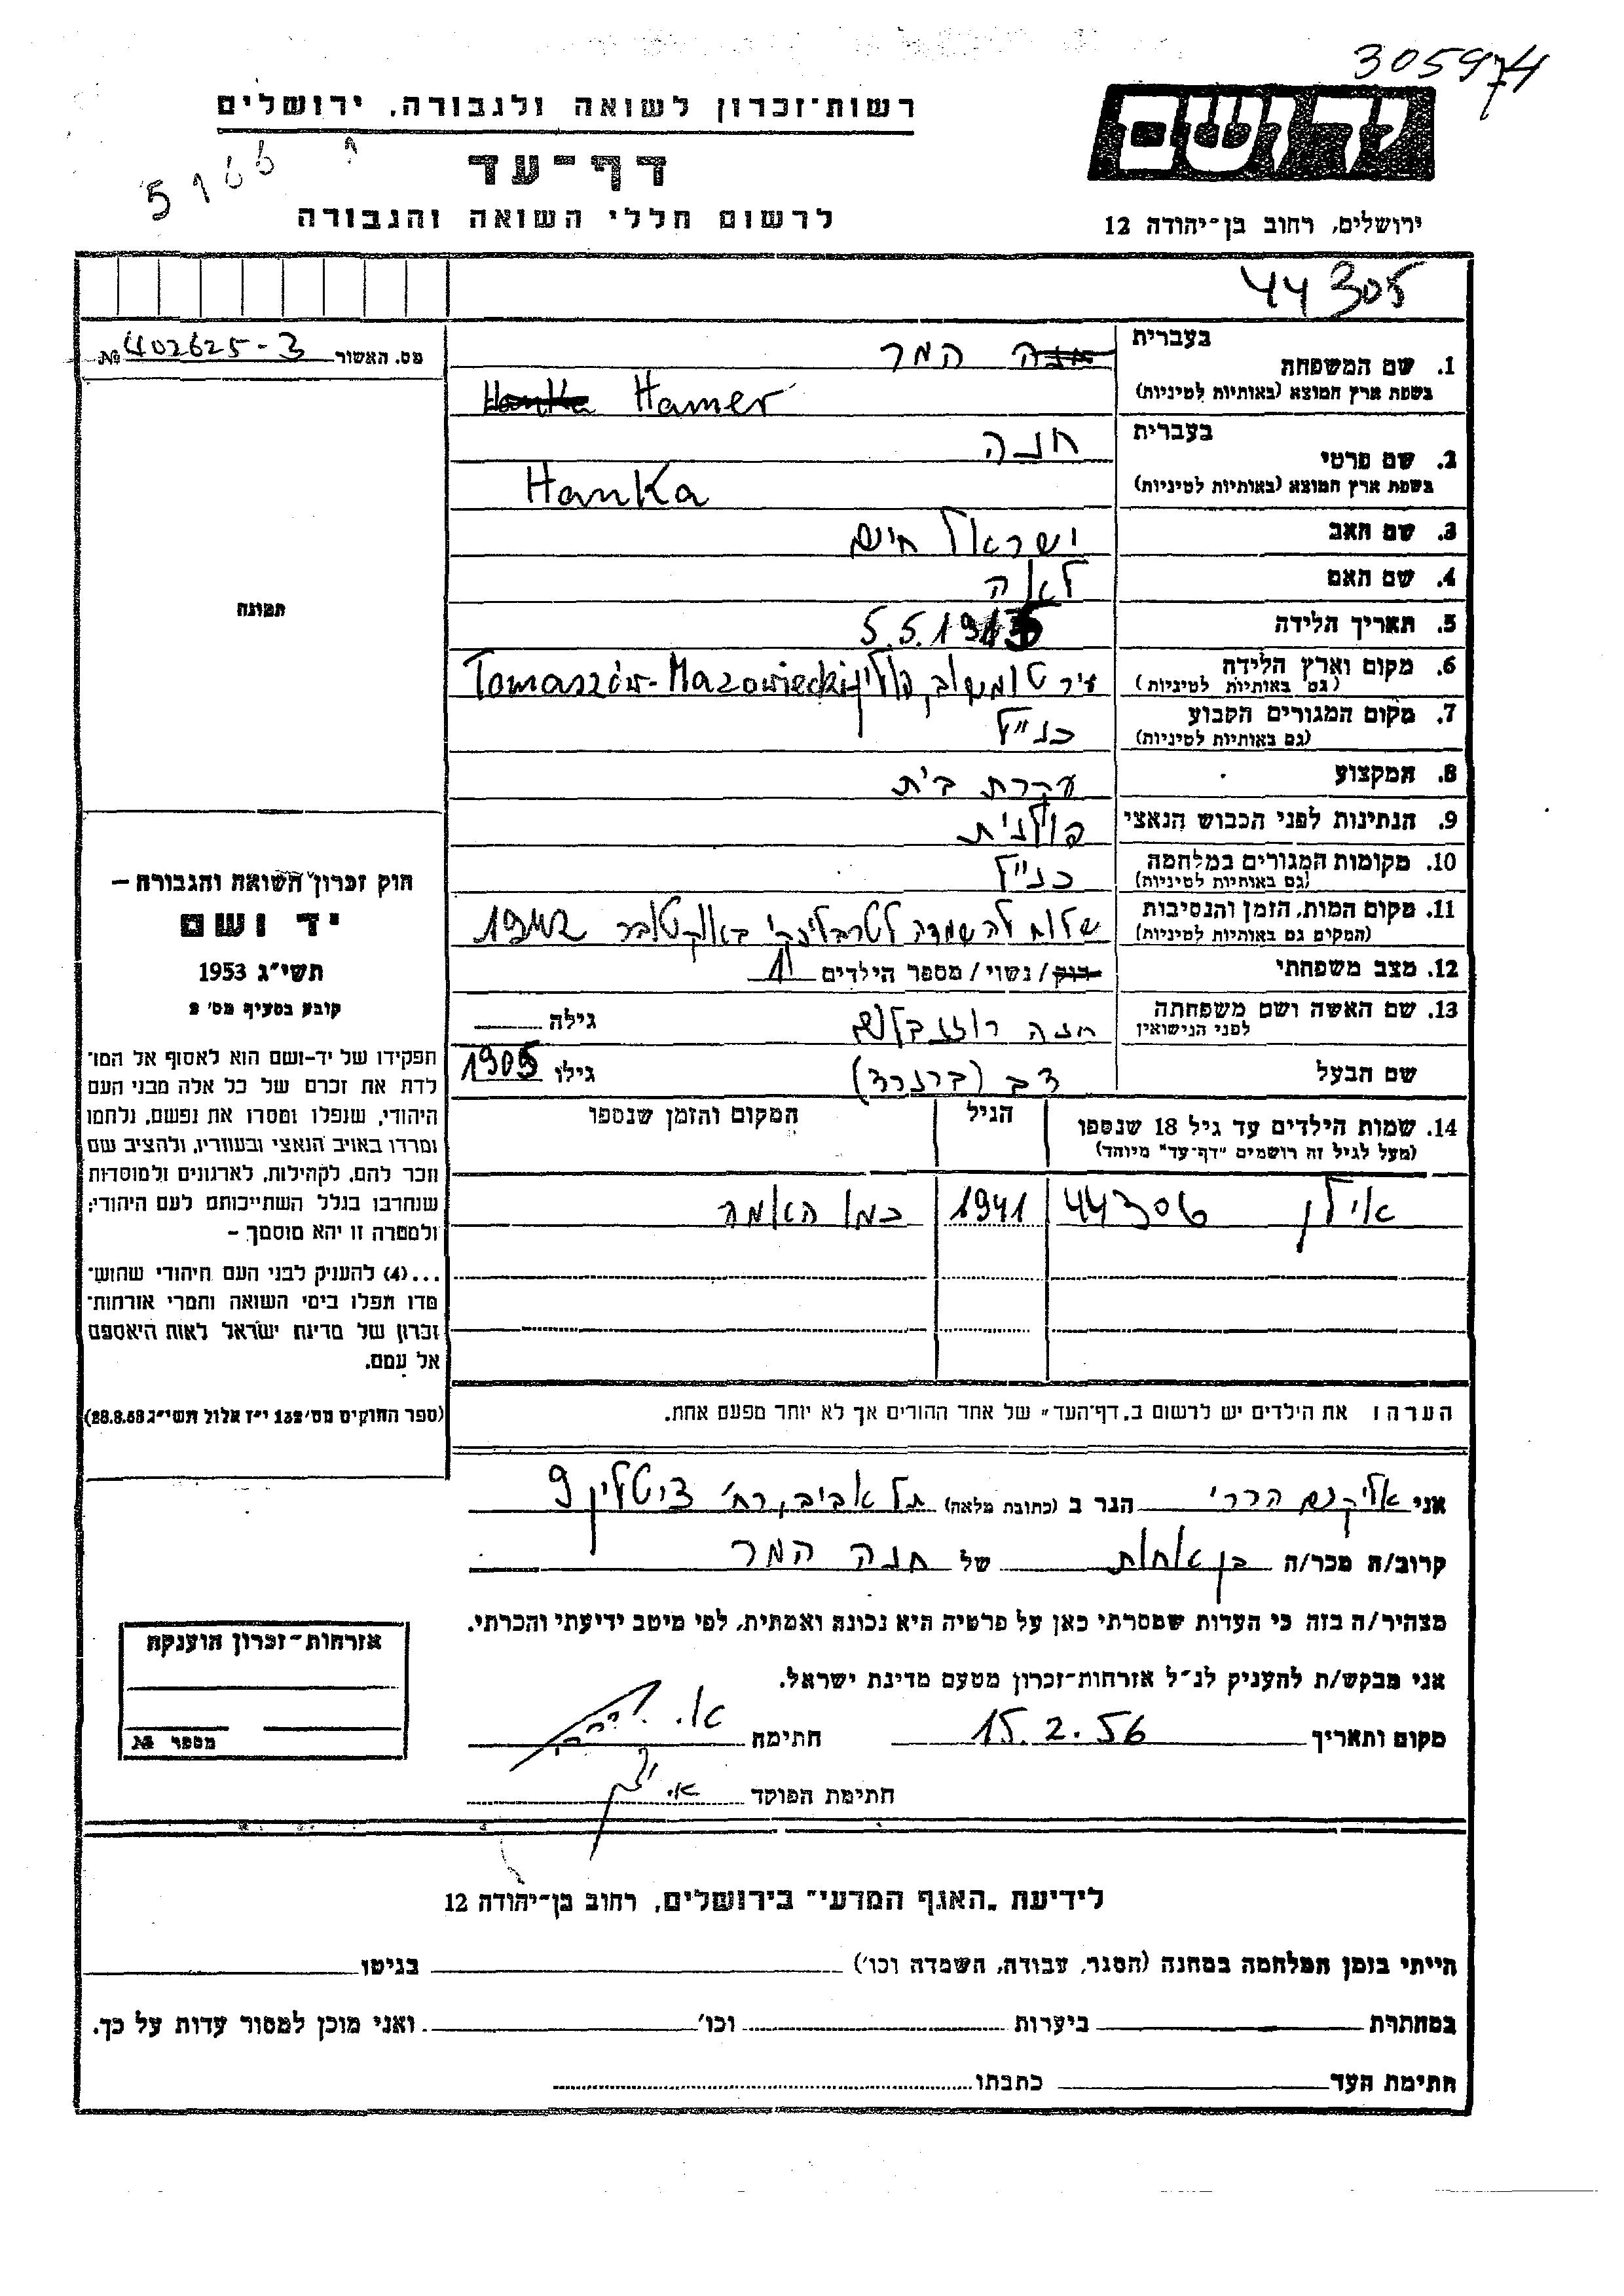 305974
רשות־זכרון לשואה ולגבורה, ירושלים
דף־עד
לרשום חללי השואה והגבורה
יד ושם
ירושלים, רחוב בן־יהודה 12
44305
מס. האשור 402625-3 №
בעברית
1. שם המשפחה המר
בשפת ארץ המוצא (באותיות לטיניות) Hanka Hamer
בעברית חנה
2. שם פרטי
בשפת ארץ המוצא (באותיות לטיניות) Hanka
3. שם האב ישראל חיים
4. שם האם לאה
5. תאריך הלידה 5.5.19
6. מקום וארץ הלידה עיר טומשוב, פולין Tomaszów-Mazowiecki
(גם באותיות לטיניות)
7. מקום המגורים הקבוע כנ״ל
(גם באותיות לטיניות)
8. המקצוע עקרת בית
9. הנתינות לפני הכבוש הנאצי פולנית
10. מקומות המגורים במלחמה כנ״ל
(גם באותיות לטיניות)
11. מקום המות, הזמן והנסיבות באוקטובר 1942
(המקום גם באותיות לטיניות)
12. מצב משפחתי רוק / נשוי / מספר הילדים 1
13. שם האשה ושם משפחתה חנה רוזנבלום גילה
לפני הנישואין
שם הבעל דב (ברנרד) גילו 1905
14. שמות הילדים עד גיל 18 שנספו הגיל המקום והזמן שנספו
(מעל לגיל זה רושמים "דף־עד" מיוחד)
אילן 44306 1941 כמו האמה
הערה: את הילדים יש לרשום ב„דף־העד״ של אחד ההורים אך לא יותר מפעם אחת.
תמונה
חוק זכרון השואה והגבורה —
יד ושם
תשי״ג 1953
קובע בסעיף מס׳ 2
תפקידו של יד-ושם הוא לאסוף אל המו־
לדת את זכרם של כל אלה מבני העם
היהודי, שנפלו ומסרו את נפשם, נלחמו
ומרדו באויב הנאצי ובעוזריו, ולהציב שם
וזכר להם, לקהילות, לארגונים ולמוסדות
שנחרבו בגלל השתייכותם לעם היהודי;
ולמטרה זו יהא מוסמך —
...(4) להעניק לבני העם היהודי שהוש־
מדו ונפלו בימי השואה והמרי אזרחות־
זכרון של מדינת ישראל לאות היאספם
אל עמם.
(ספר החוקים מס׳ 132 י״ז אלול תשי״ג 28.8.53)
אני אליקים הררי הגר ב (כתובת מלאה) תל אביב, רח׳ צייטלין 9
קרוב/ה מכר/ה בן אחות של חנה המר
מצהיר/ה בזה כי העדות שמסרתי כאן על פרטיה היא נכונה ואמתית, לפי מיטב ידיעתי והכרתי.
אני מבקש/ת להעניק לנ״ל אזרחות־זכרון מטעם מדינת ישראל.
מקום ותאריך 15.2.56 חתימה
חתימת הפוקד
אזרחות־זכרון הוענקה
מספר №
לידיעת „האגף המדעי״ בירושלים, רחוב בן־יהודה 12
הייתי בזמן המלחמה במחנה (הסגר, עבודה, השמדה וכו׳) בגיטו
במחתרת ביערות וכו׳ ואני מוכן למסור עדות על כך.
חתימת העד כתבתו